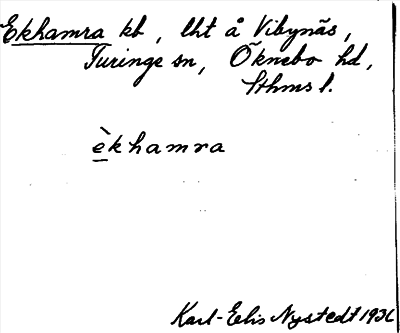 Ekhamra kb, lht å Vibynäs,
Turinge sn, Öknebo hd,
Sthms l.
èkhamra
Karl-Elis Nystedt 1936